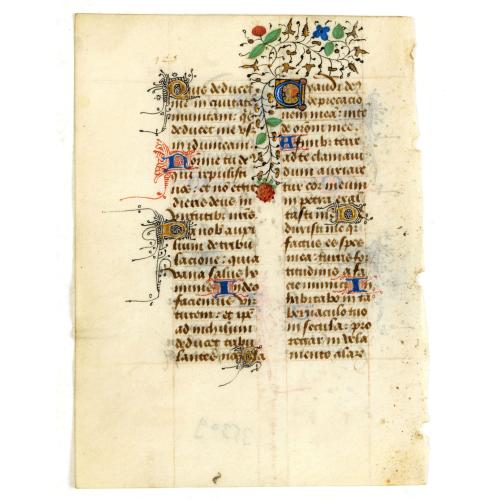 Quis deducet
me in civitatē
munitam: quis
deducet me us
in ydumeam
Nonne tu deus
qui repulisti
nos: et non egre
dieris deus in
virtutibȝ nr̄is
Da nob auxiliū
de tribu
lacione: quia
vana salus ho
minis In deo
faciemus vir
tutem: et ipe
ad nichilum
deducet tribu
lantes nos
Exaudi deus
deprecacio
nem meā inte
de oroni mee
A finibȝ terre
ad te clamavi
dum anxiare
tur cor meum
in petra exal
tasti me
duxisti me q
factus es spes
mea: turris for
titudinis a fa
cie inimici In
habitabo in ta
bernaculo tuo
in secula: pro
tegar in vela
mento alarꝝ